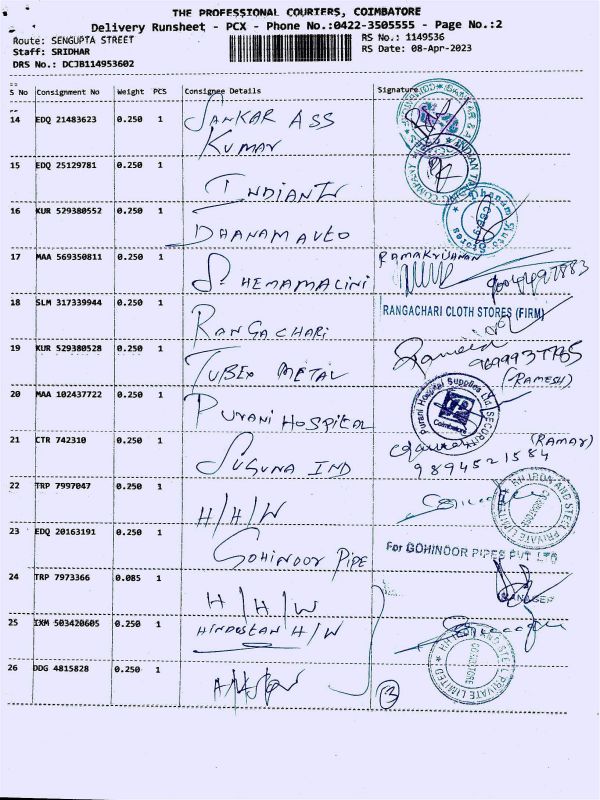 THE PROFESSIONAL COURIERS, COIMBATORE
Delivery Runsheet - PCX - Phone No.:0422-3505555 - Page No.:2
Route: SENGUPTA STREET
RS No.: 1149536
Staff: SRIDHAR
RS Date: 08-Apr-2023
DRS No.: DCJB114953602
S No Consignment No Weight PCS Consignee Details Signature
14 EDQ 21483623 0.250 1 SANKAR ASS
KUMAR
15 EDQ 25129781 0.250 1 INDIAN
16 KUR 529380552 0.250 1 DHANAM AUTO
Dhanam Auto Stores
17 MAA 569350811 0.250 1 S. HEMAMALINI
18 SLM 317339944 0.250 1 RANGACHARI
RANGACHARI CLOTH STORES (FIRM)
19 KUR 529380528 0.250 1 TUBEX METAL
(RAMESH)
20 MAA 102437722 0.250 1 PURANI HOSPITAL
Purani Hospital Supplies Ltd
SECURITY
Coimbatore
21 CTR 742310 0.250 1 SUGUNA IND
(RAMAR)
9894521584
22 TRP 7997047 0.250 1 H/H/W
23 EDQ 20163191 0.250 1 GOHINOOR PIPE
For GOHINOOR PIPES PVT LTD
24 TRP 7973366 0.085 1 H/H/W
MANAGER
25 IXM 503420605 0.250 1 HINDUSTAN H/W
26 DDG 4815828 0.250 1